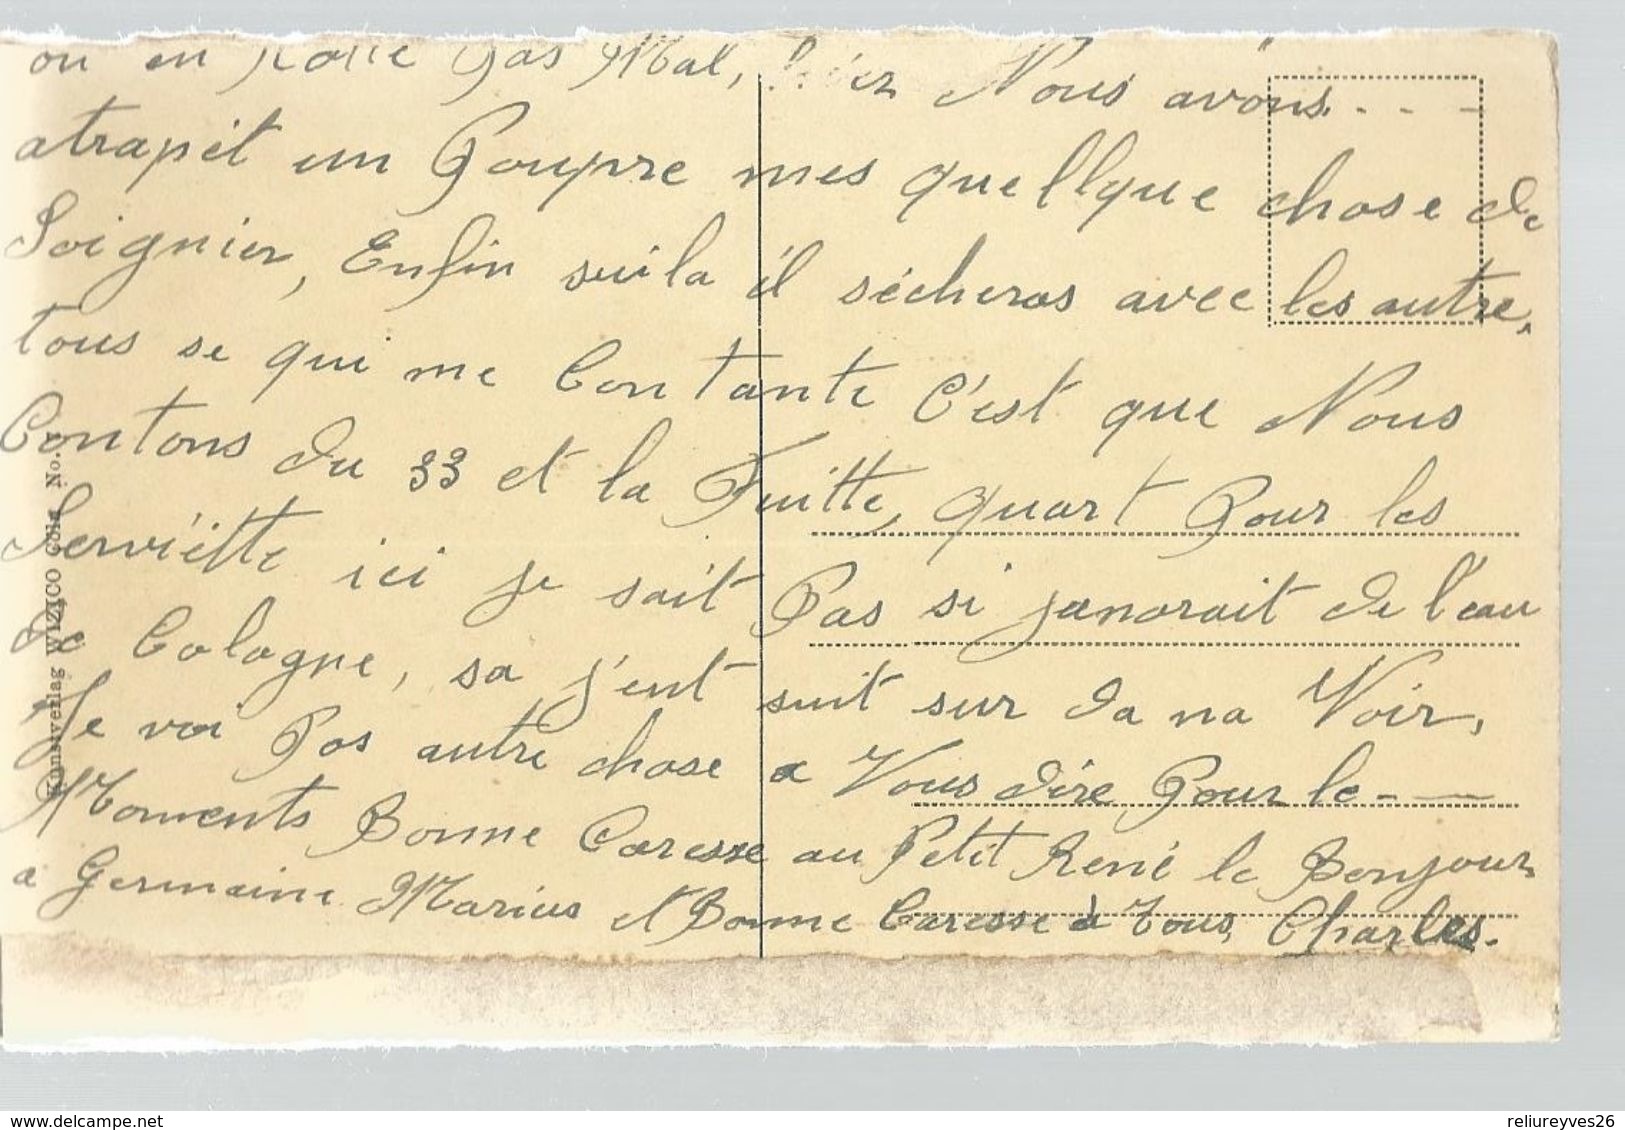 on en Pas Mal, Nous avons. - - -
atrapèt un Poupre mes quellque chose de
Soignier, Enfin suila il sécheras avec les autre,
tous se qui me Contante C'est que Nous
Contons du 33 et la Fuitte, quart Pour les
Serviétte ici je sait Pas si janorait de l'eau
de Cologne, sa j'ent suit sur da na Voir,
Je voi Pas autre chose a Vous dire Pour le - —
Moments Bonne Caresse au Petit René le Bonjour
a Germaine Marius et Bonne Caresse à Tous, Charles.
Kunstverlag WIZICO Köln No.
reliureyves26
www.delcampe.net